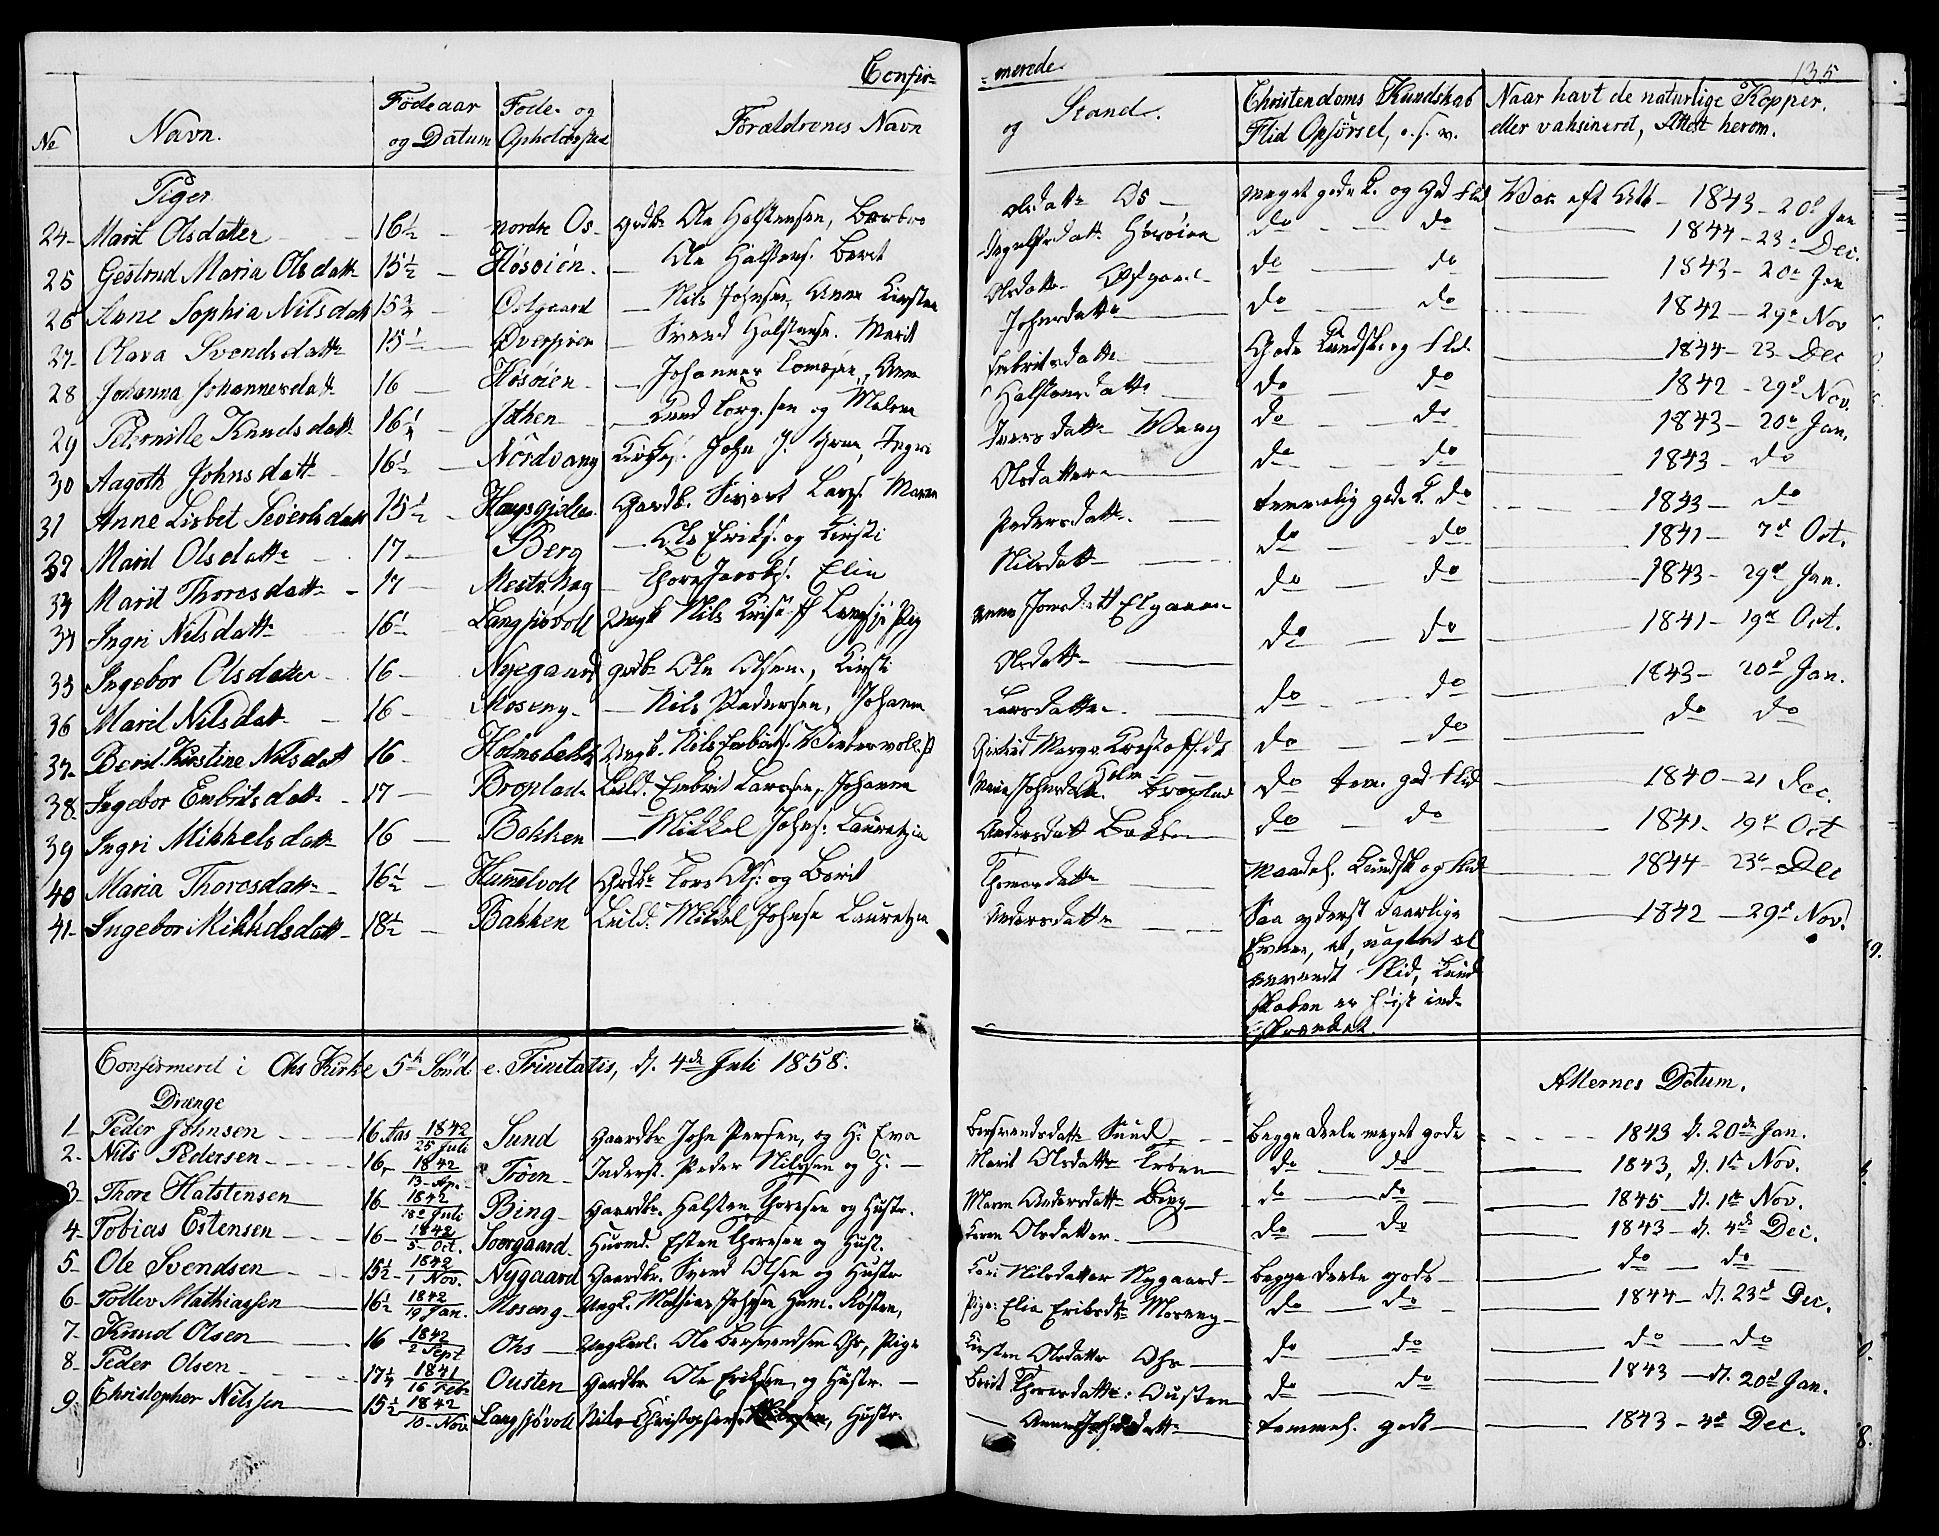 Confir- -merede 135
No Navn. Fødeaar og Datum Føde- og Opholdssted Forældrenes Navn og Stand. Christendoms Kundskab Flid Opførsel, o. s. v. Naar havt de naturlige Kopper, eller vaksineret, Attest herom.
Piger
24- Marit Olsdatter 16½ - nordre Os- Grdbr Ole Halstensen, Barbro Olsdattr Os - meget gode K. og god Flid Vac. eft Att- 1843 - 20d Jan
25 Gestrud Maria Olsdattr 15½ - Høsøien. - Ole Halstens. Berit Høsøien do - do 1844 - 23d Dec.
26 Anne Sophia Nilsdatt 15¾ - Ostgaard - Nils Johnsen, Anne Kirsten Olsdattr Ostgaard - do - do 1843 - 20d Jan
27- Olava Svendsdattr 15½ - - Svend Halstense. Marit Johnsdattr do - do 1842 - 29d Nov
28 Johanna Johannesdatt 16 - Høsøien - - Johannes Tomesen, Anne Embretsdattr Gode Kundsk. og Flid 1844 - 23 - Dec
29 Pernille Knudsdatt 16¼ - Jthen - - Knud Torg.sen og Malene Halstensdattr do - do 1842 - 29d Nov.
30 Aagoth Johnsdatt 16½ - Nordvang John J. Ingri Iversdattr Vang do - do 1843 - 20d Jan,
31 Anne Lisbet Siversdatt 15½ - Gardb. Sivert Lars. Maren Olsdatter do - do 1843 - do
32 Marit Olsdattr 17 - Berg - Ole Eriks. og Kirsti Pedersdattr. temmelig gode K. do 1843 - do
33 Marit Thoresdattr - 17 - - Thore Jacobs. Elin Nilsdattr do - do 1841 - 7d Oct.
34 Ingri Nilsdattr 16½ - Langsjøvoll Ungk Nils Pig Anne Jonsdatt Elgaaen do - do 1843 - 29d Jan.
35 Ingebor Olsdatter - 16 - Nyegaard grdbr Ole Olsen, Kirsti Olsdattr do - do 1841 - 19d Oct.
36 Marit Nilsdatt 16 - Moseng - - Nils Pedersen, Johanne Larsdatter do - do 1843 - 20d Jan.
37- Berit Kirstine Nilsdatt 16 - Holmsbakk Ungk. Nils Embrets. Vintervoll. P Gertrud Marga Kristoffds Holm do - do do do
38. Ingebor Embritsdattr - 17 - Broplad- Leild. Embrit Larssen, Johanne Marie Johnsdatt. Broplad do tem. god Flid 1840 - 21 Dec.
39 Ingri Mikkelsdattr 16 - Bakken - Mikkel Johns: Lauretzia Andersdatt Bakken do - do 1841 - 19d Oct
40 Maria Thoresdattr - 16½ - Hummelvoll Grdbr Tore Ols: og Berit Thomasdattr maadel. Kundsk og Flid 1844 - 23d Dec
41- Ingebor Mikkelsdatt - 18½ - Bakken Leild. Mikkel Johnse Lauretzia Andersdattr Saa yderst daarlige 1842 - 29d Nov.
Evner, at, uagtet al
anvendt Flid, Kund-
skaben er høist ind-
skrænket.
Confirmered i Ohs Kirke 5te Sønd. e. Trinitatis, d. 4de Juli 1858. Attesternes Datum.
Drænge
1- Peder Johnsen 16 Aar 1842 25 Juli Sund Gaardbr John Persen, og H. Eva Bersvendsdattr Sund - begge Deele meget gode 1843 d. 20de Jan.
2- Nils Pedersen 16, 1842 13 - Ap. Trøen - Inderst. Peder Nilssen og H. - Marit Olsdattr Trøen do - do 1843, d. 1ste Nov.
3 Thore Halstensen 16 - 1842 18d Juli Bing - Gaardbr. Halsten Thoresen og Hustr. Maren Andersdattr Bing - do - do 1845 - d. 1ste Nov.
4- Tobias Estensen 16 - 1842 5 - Oct. Soergaard. Huusmd. Esten Thoresen og Hust. Karen Olsdatter do - do 1843 - d. 4de Dec.
5- Ole Svendsen 15½ - 1842 1 Nov. Nygaard Gaardbr. Svend Olsen og Hustr Kari Nilsdatter Nygaard - begge Deele gode do - do
6- Tollev Mathiassen 16½ 1842 19 Jan. Moseng - Ungk. Mathias Johnsen Hum. Kosten, Pige: Elin Eriksdtr Moseng - do - do 1844 - d. 23d Dec.
7- Knud Olsen 16 1842 2 Sept Ohs - Ungkarl. Ole Bersvendsen Ohs, Pige Kirsten Olsdattr Ohs - do do do - do
8- Peder Olsen 17¼ 1841 16 Feb. Ousten Gardbr Ole Eriksen og Hustr. - Berit Thoresdattr: Ousten do - do 1843 - d. 20d Jan.
9- Christopher Nilssen 15½ 1842 10 - Nov. Langsjøvoll Nils Christophersen, Hustr. - Anne Johnsdattr - temmel. godt 1843 - 4d Dec.